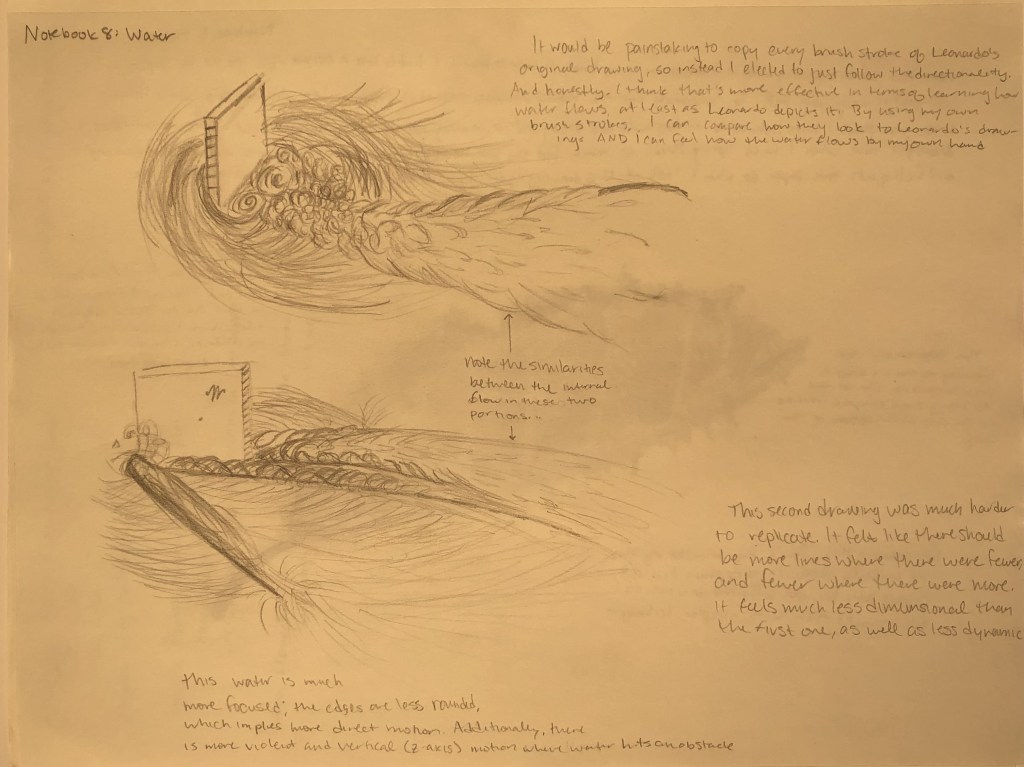 Notebook 8: Water
It would be painstaking to copy every brush stroke of Leonardo's
original drawing, so instead I elected to just follow the directionality.
And honestly, I think that's more effective in terms of learning how
water flows, at least as Leonardo depicts it. By using my own
brush strokes, I can compare how they look to Leonardo's draw-
ings AND I can feel how the water flows by my own hand
note the similarities
between the internal
flow in these two
portions...
This second drawing was much harder
to replicate. It felt like there should
be more lines where there were fewer,
and fewer where there were more.
It feels much less dimensional than
the first one, as well as less dynamic
this water is much
more focused; the edges are less rounded,
which implies more direct motion. Additionally, there
is more violent and vertical (z-axis) motion where water hits an obstacle